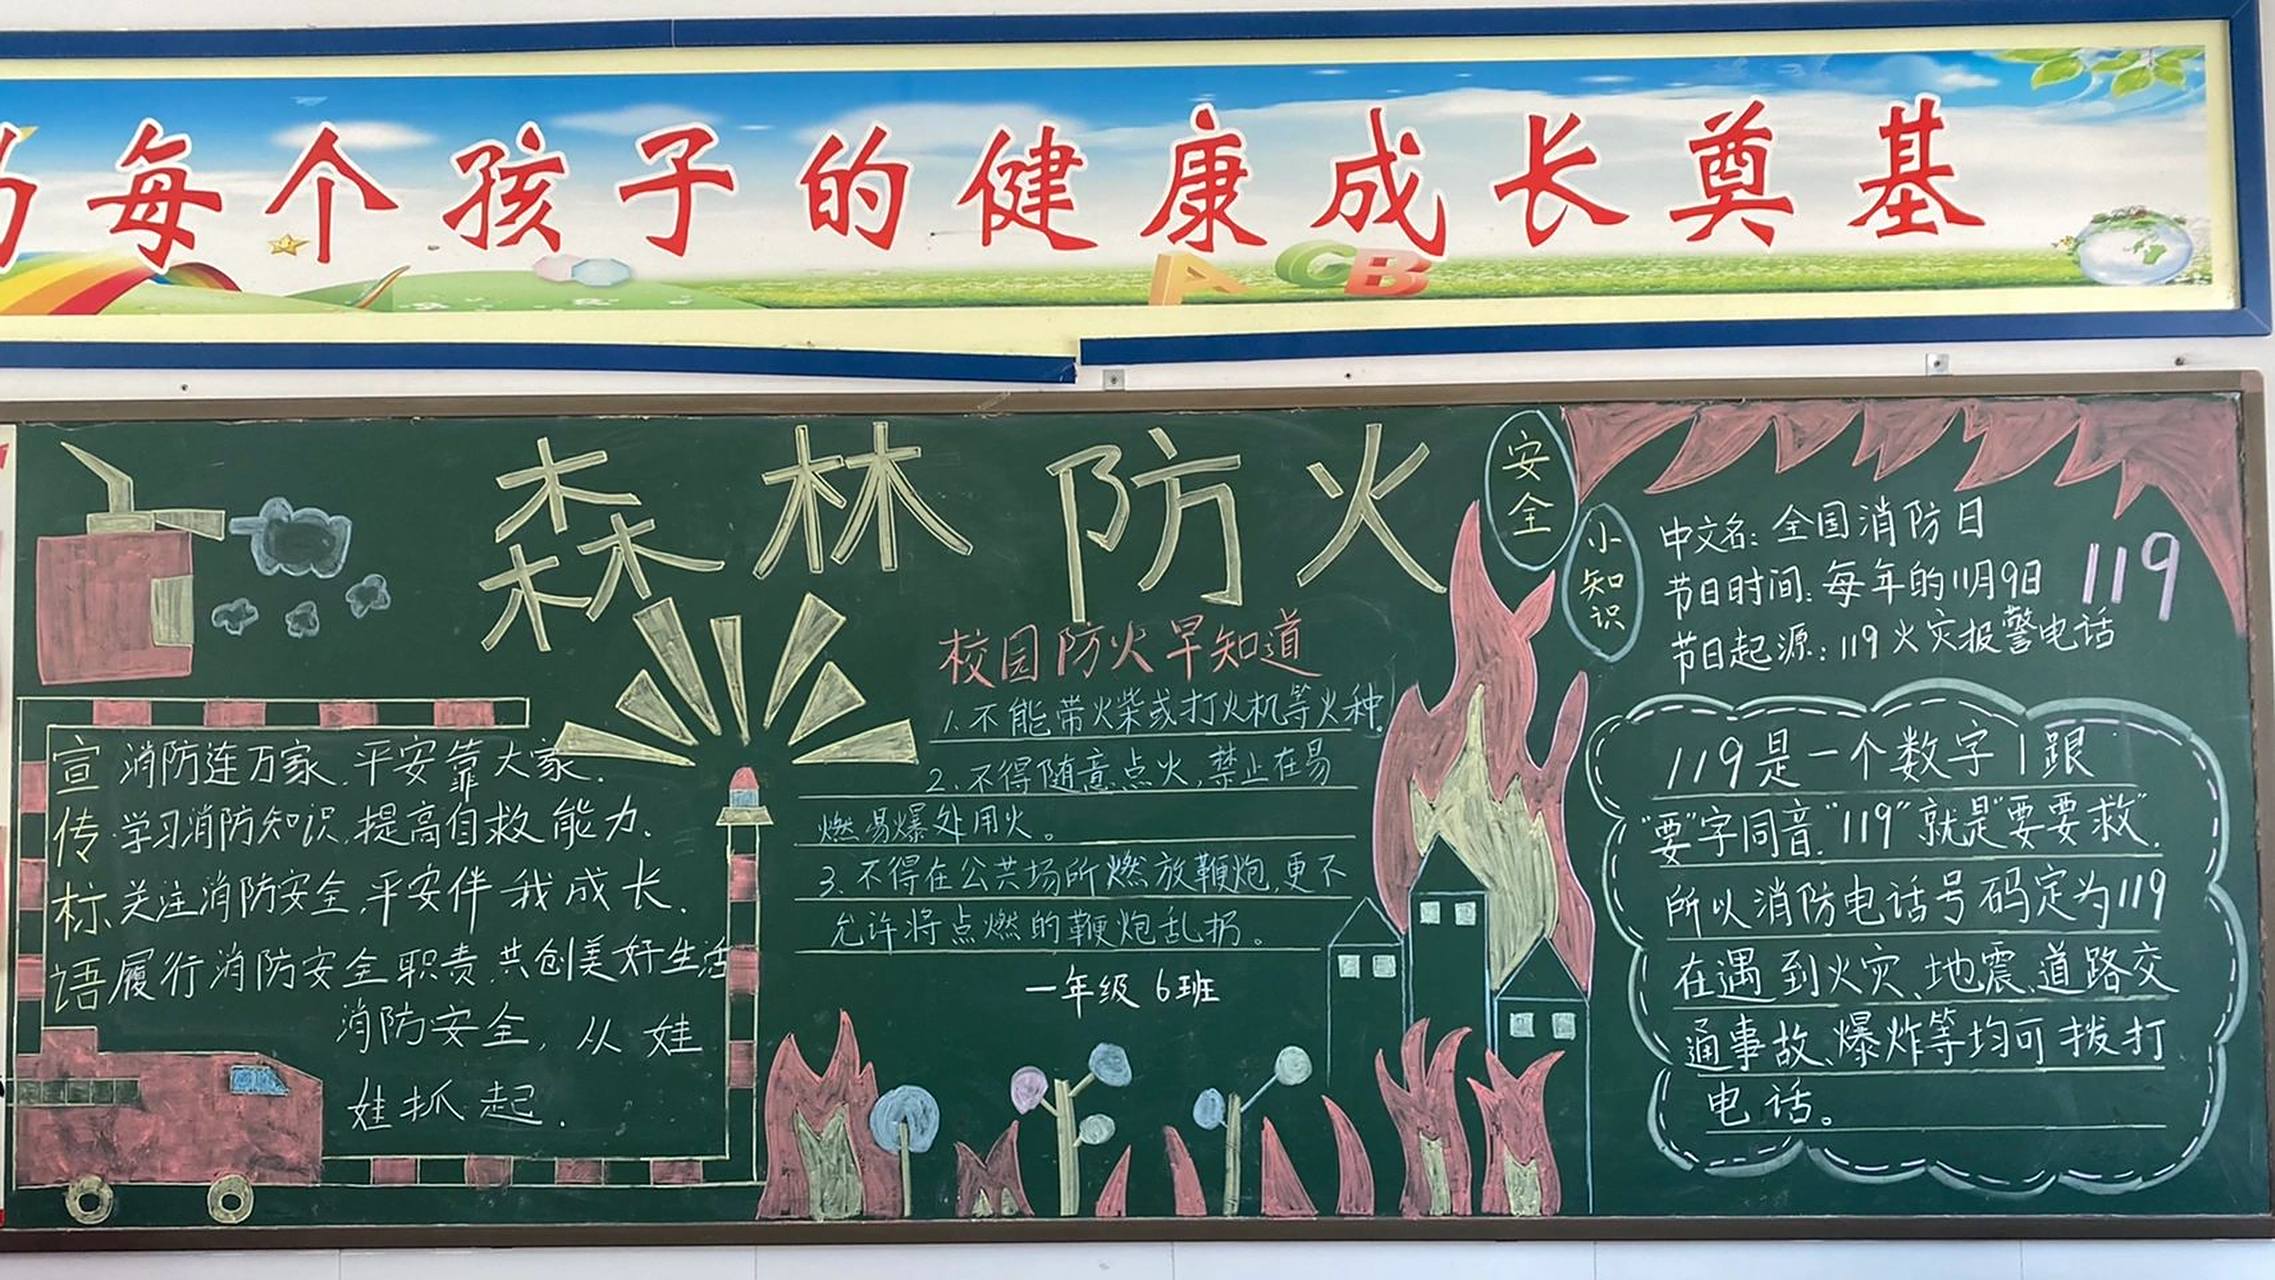 为每个孩子的健康成长奠基
ACB
森林防火
安全
小知识
宣传标语
消防连万家,平安靠大家.
学习消防知识,提高自救能力.
关注消防安全,平安伴我成长.
履行消防安全职责,共创美好生活
消防安全,从娃
娃抓起.
校园防火早知道
1.不能带火柴或打火机等火种.
2.不得随意点火,禁止在易
燃易爆处用火。
3.不得在公共场所燃放鞭炮,更不
允许将点燃的鞭炮乱扔。
一年级 6班
中文名:全国消防日
节日时间:每年的11月9日
节日起源:119火灾报警电话
119
119是一个数字1跟
"要"字同音."119"就是"要要救".
所以消防电话号码定为119
在遇到火灾、地震、道路交
通事故、爆炸等均可拨打
电话。